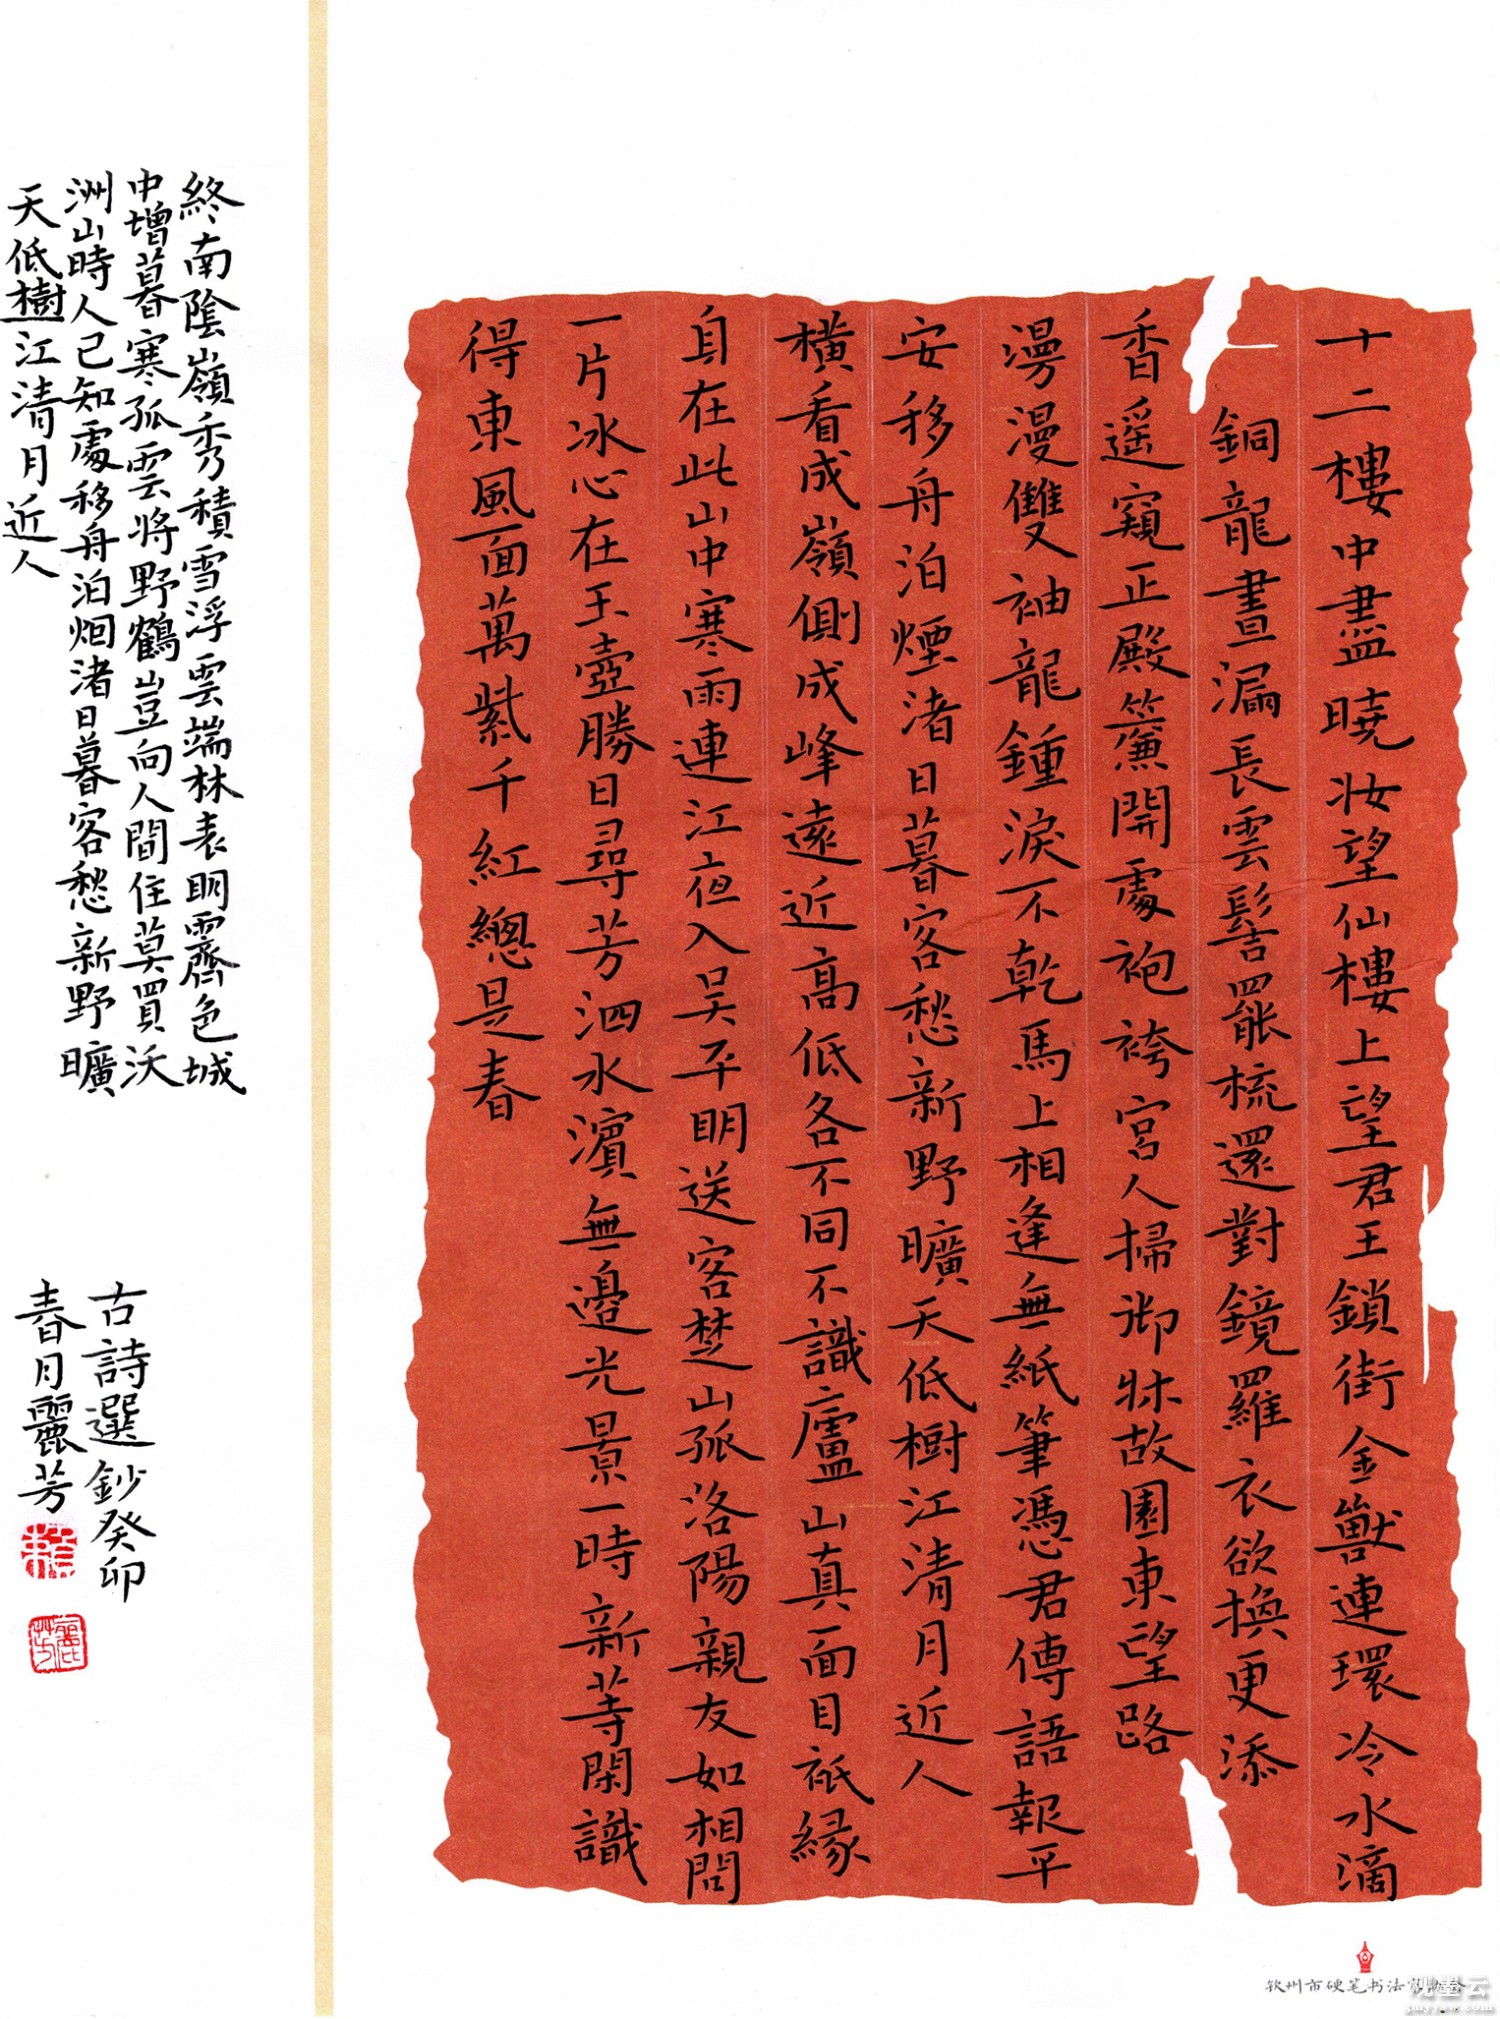 十二樓中盡曉妝望仙樓上望君王鎖銜金獸連環冷水滴
銅龍晝漏長雲髻罷梳還對鏡羅衣欲換更添
香遥窺正殿簾開處袍袴宮人掃御牀故園東望路
漫漫雙袖龍鍾淚不乾馬上相逢無紙筆憑君傳語報平
安移舟泊煙渚日暮客愁新野曠天低樹江清月近人
橫看成嶺側成峰遠近高低各不同不識廬山真面目祇緣
身在此山中寒雨連江夜入吴平明送客楚山孤洛陽親友如相問
一片冰心在玉壺勝日尋芳泗水濱無邊光景一時新等閑識
得東風面萬紫千紅總是春
終南陰嶺秀積雪浮雲端林表明霽色城
中增暮寒孤雲將野鶴豈向人間住莫買沃
洲山時人已知處移舟泊烟渚日暮客愁新野曠
天低樹江清月近人
古詩選鈔癸卯
春月麗芳
麗芳
钦州市硬笔书法家协会